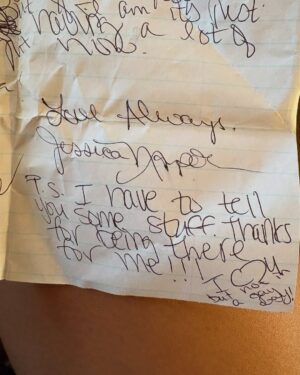 am it's just
having a lot of
now.
Love Always,
Jessica
P.S I have to tell
you some stuff. Thanks
for being there
for me!!!
I not gay
but a